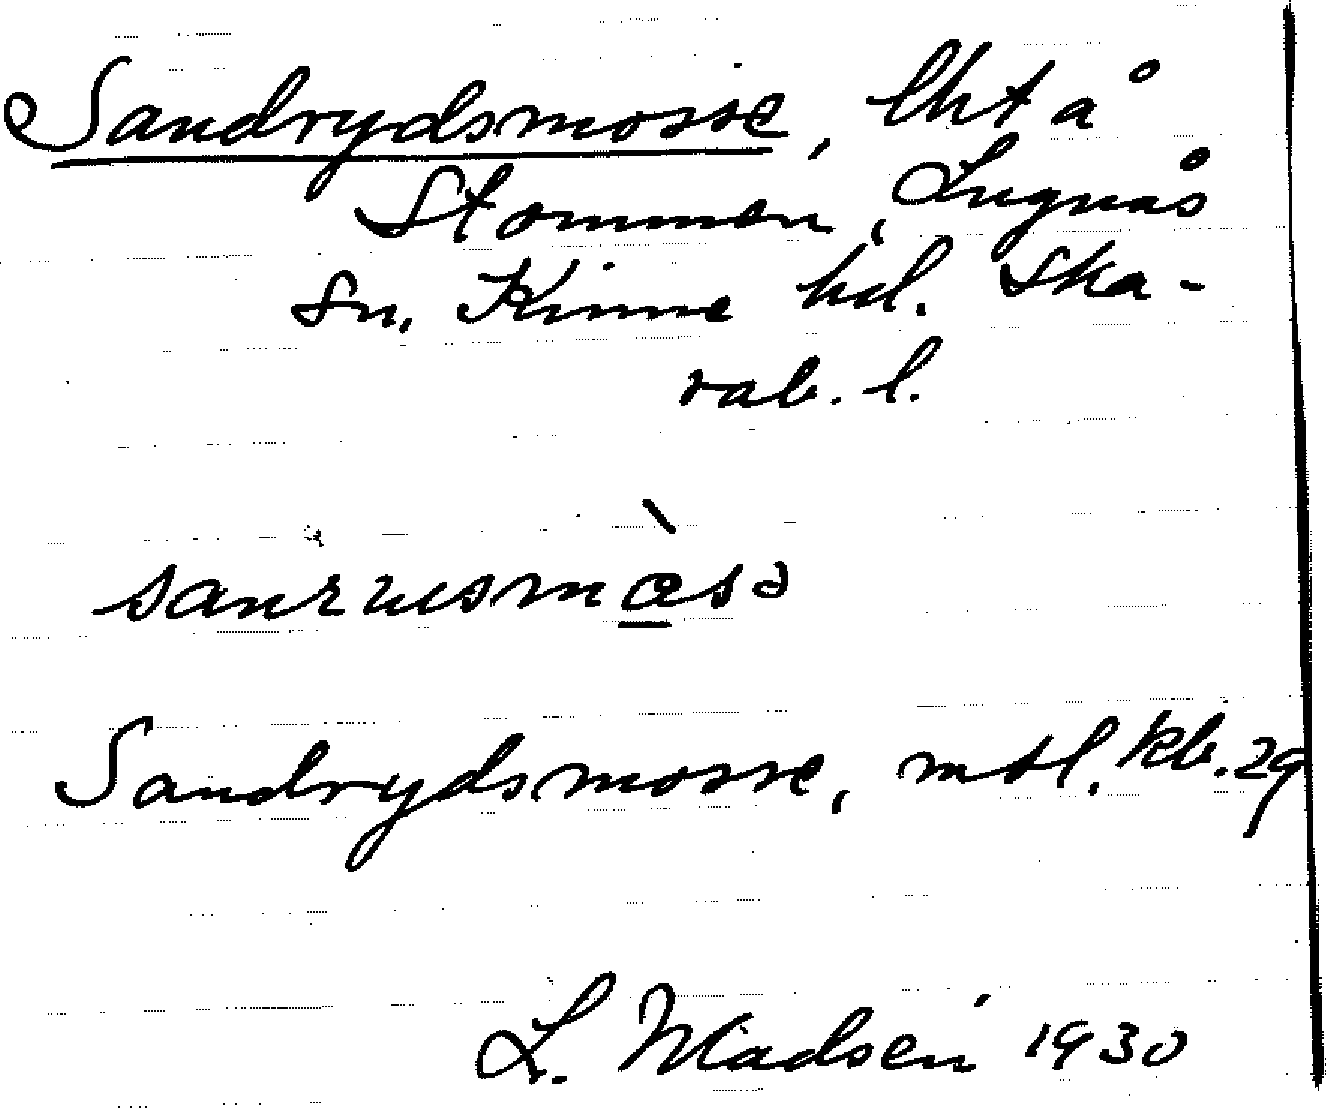 Sandrydsmosse, lht å
Stommen, Lugnås
sn, Kinne hd. Ska-
rab. l.
Sandrydsmosse, mtl. kb. 29
L. Madsén 1930